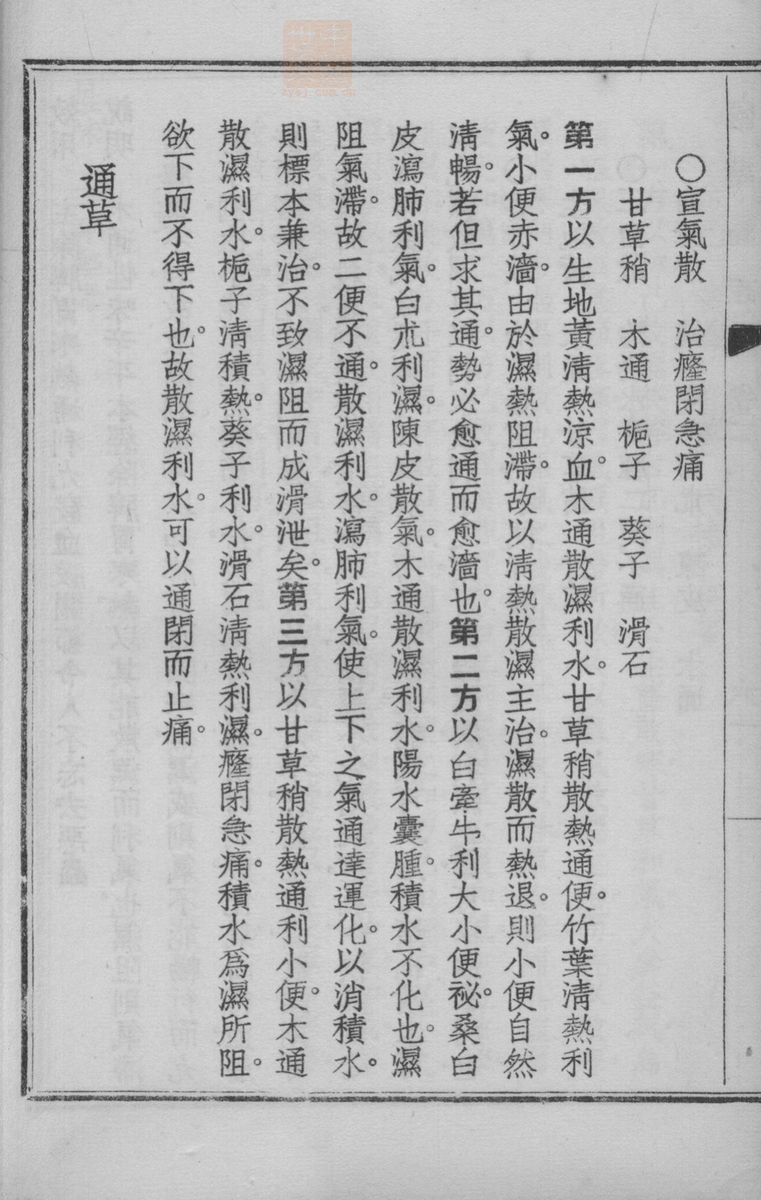 ○宣氣散　治癃閉急痛
甘草稍　木通　梔子　葵子　滑石
第一方以生地黃淸熱涼血。木通散濕利水。甘草稍散熱通便。竹葉淸熱利
氣。小便赤濇。由於濕熱阻滯。故以淸熱散濕主治。濕散而熱退。則小便自然
淸暢。若但求其通。勢必愈通而愈濇也。第二方以白牽牛利大小便祕。桑白
皮瀉肺利氣。白朮利濕。陳皮散氣。木通散濕利水。陽水囊腫。積水不化也。濕
阻氣滯。故二便不通。散濕利水。瀉肺利氣。使上下之氣通達運化。以消積水。
則標本兼治。不致濕阻而成滑泄矣。第三方以甘草稍散熱通利小便。木通
散濕利水。梔子淸積熱。葵子利水。滑石淸熱利濕。癃閉急痛。積水爲濕所阻。
欲下而不得下也。故散濕利水。可以通閉而止痛。
通草